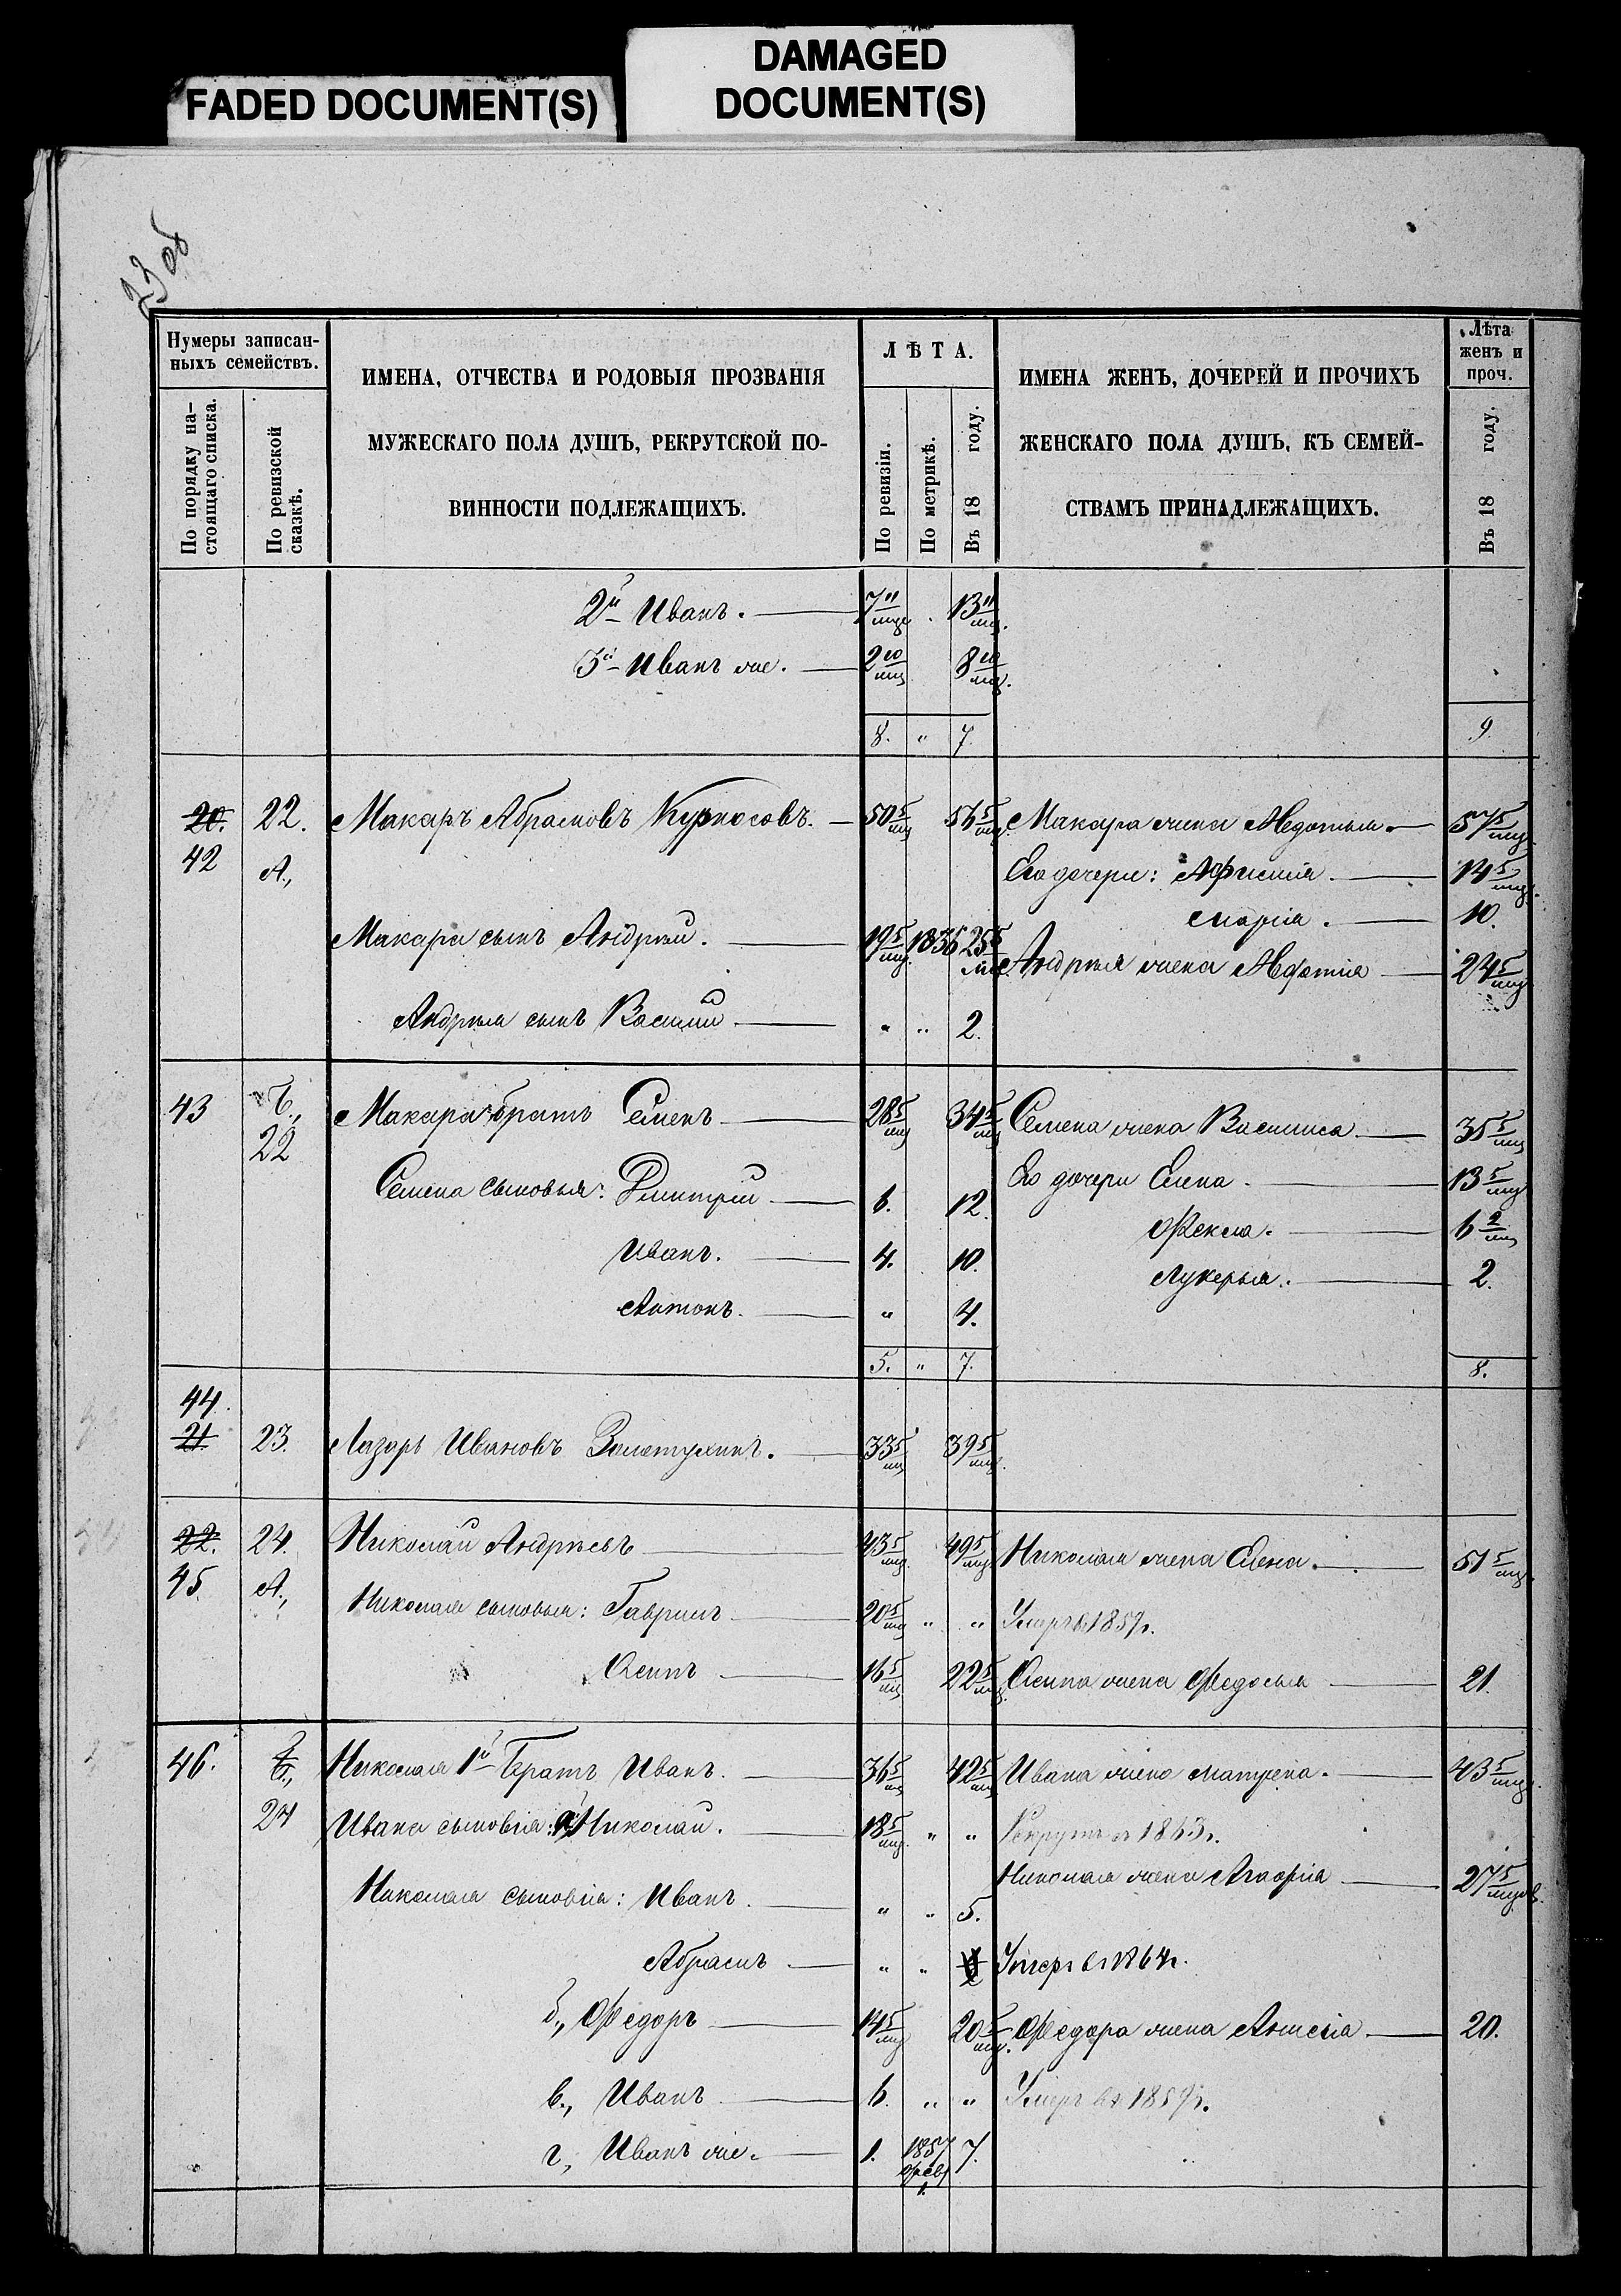 FADED DOCUMENT(S)
DAMAGED
DOCUMENT(S)
23 об
Нумеры записан-
ныхъ семействъ.
По порядку на-
стоящаго списка.
По ревизской
сказкѣ.
ИМЕНА, ОТЧЕСТВА И РОДОВЫЯ ПРОЗВАНІЯ
МУЖЕСКАГО ПОЛА ДУШЪ, РЕКРУТСКОЙ ПО-
ВИННОСТИ ПОДЛЕЖАЩИХЪ.
ЛѢТА.
По ревизіи.
По метрикѣ.
Въ 18 году.
ИМЕНА ЖЕНЪ, ДОЧЕРЕЙ И ПРОЧИХЪ
ЖЕНСКАГО ПОЛА ДУШЪ, КЪ СЕМЕЙ-
СТВАМЪ ПРИНАДЛЕЖАЩИХЪ.
Лѣта
женъ и
проч.
Въ 18 году.
2й Иванъ. 7 11/мце. 13 11/мц.
3й Иванъ же. 2 10/мц 8 10/мц.
8. " 7. 9.
20. 22. Макаръ Абрамовъ Курносовъ. 50 5/мц 56 5/мц. Макара жена Авдотья. 57 5/мц.
42 А., Его дочери: Афимія. 14 5/мц.
Марія. 10.
Макара сынъ Андрей. 19 5/мц. 1836 25 5/мц Андрея жена 24 5/мц.
Андрея сынъ Василій " " 2.
43 Б., Макара братъ Семенъ 28 5/мц 34 5/мц Семена жена Василиса 35 5/мц
22
Семена сыновья: Дмитрій 6. 12. Его дочери Елена. 13 5/мц
Иванъ. 4. 10. Фекла. 6 2/мц
Антонъ. " 4. Лукерья. 2.
5. " 7. 8.
44.
21. 23. Лазарь Ивановъ Золотухинъ. 33 5/мц 39 5/мц.
22. 24. Николай Андреевъ 43 5/мц. 49 5/мц. Николая жена Елена. 51 5/мц.
45. А., Николая сыновья: Гаврилъ 20 5/мц " " Умеръ в 1857 г.
Осипъ 16 5/мц 22 5/мц. Осипа жена Федосья 21.
46. Б., Николая 1й братъ Иванъ. 36 5/мц 42 5/мц Ивана жена Матрена. 43 5/мц.
24 Ивана сыновія: а, Николай. 18 5/мц. " " Рекрутъ в 1863 г.
Николая жена 27 5/мцов.
Николая сыновія: Иванъ. " " 5.
Абрамъ " " Умеръ в 1864 г.
б., Федоръ 14 5/мц 20 5/мц. Федора жена 20.
в., Иванъ 6. " " Умеръ въ 1859 г.
г, Иванъ же. 1. 1857 февр 1. 7.